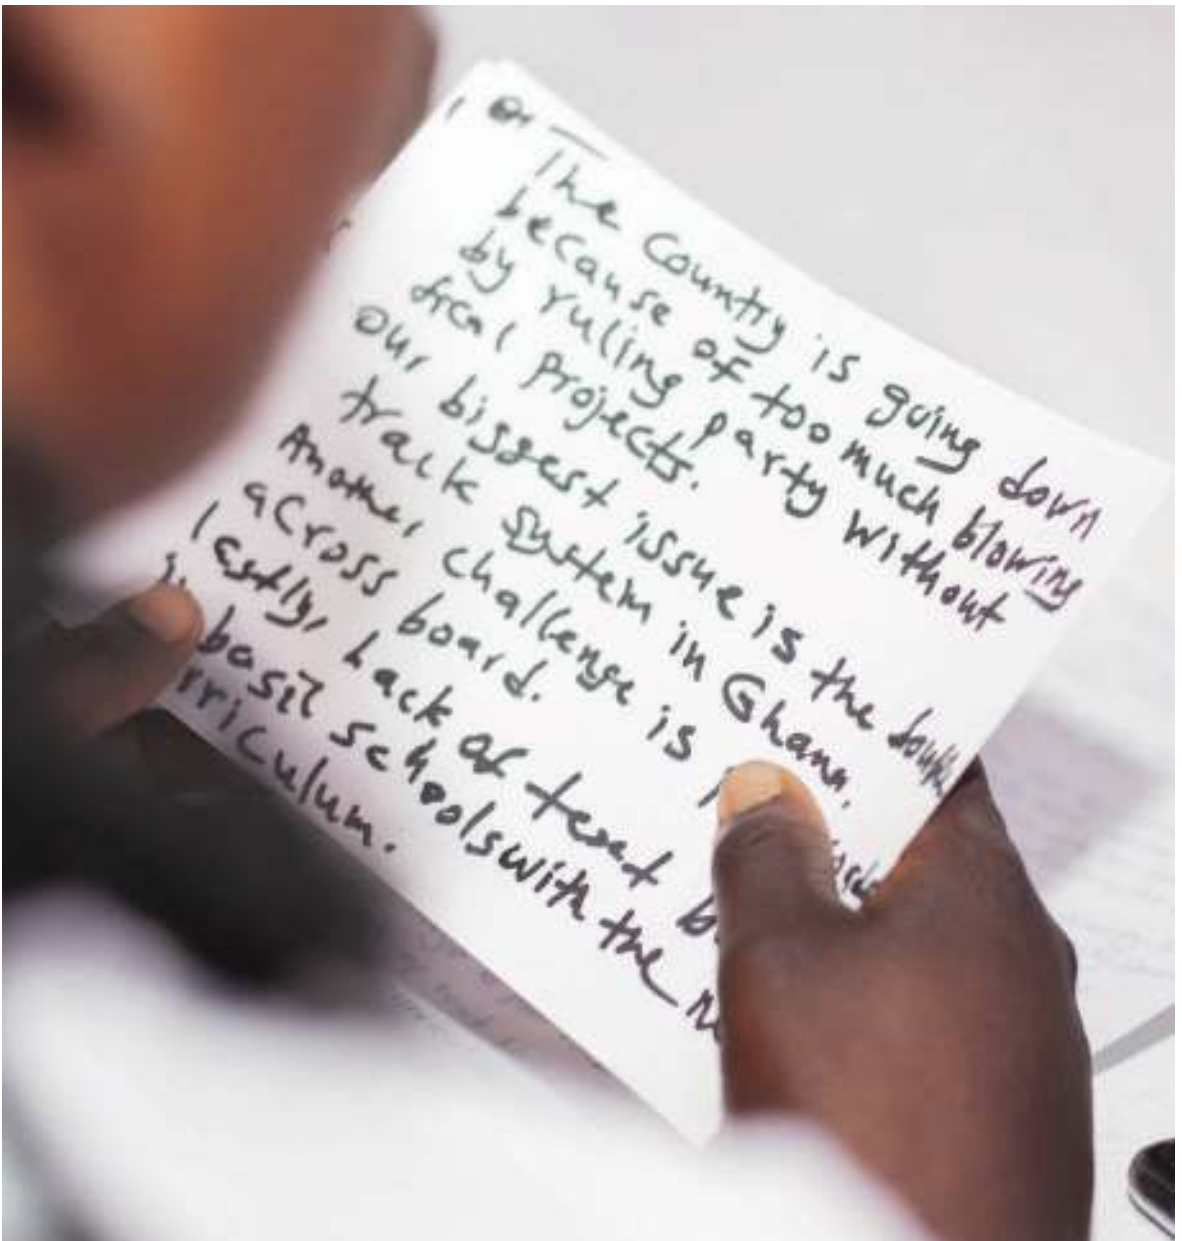 The country is going down
because of too much blowing
by ruling party without
projects.
Our biggest issue is the double
track system in Ghana.
Another challenge is
across board.
lastly, Lack of text
basic schools with the
rriculum.